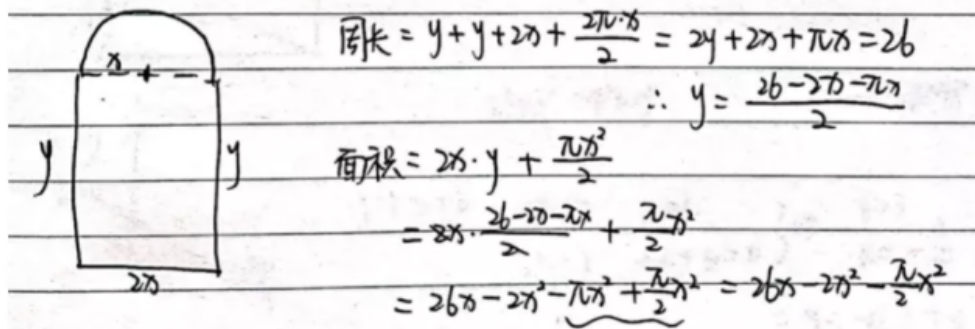 周长 = y + y + 2x + \frac{2π·x}{2} = 2y + 2x + πx = 26
x
∴ y = \frac{26 - 2x - πx}{2}
y
y
面积 = 2x · y + \frac{πx²}{2}
= 2x · \frac{26 - 2x - πx}{2} + \frac{π}{2}x²
2x
= 26x - 2x² - πx² + \frac{π}{2}x² = 26x - 2x² - \frac{π}{2}x²